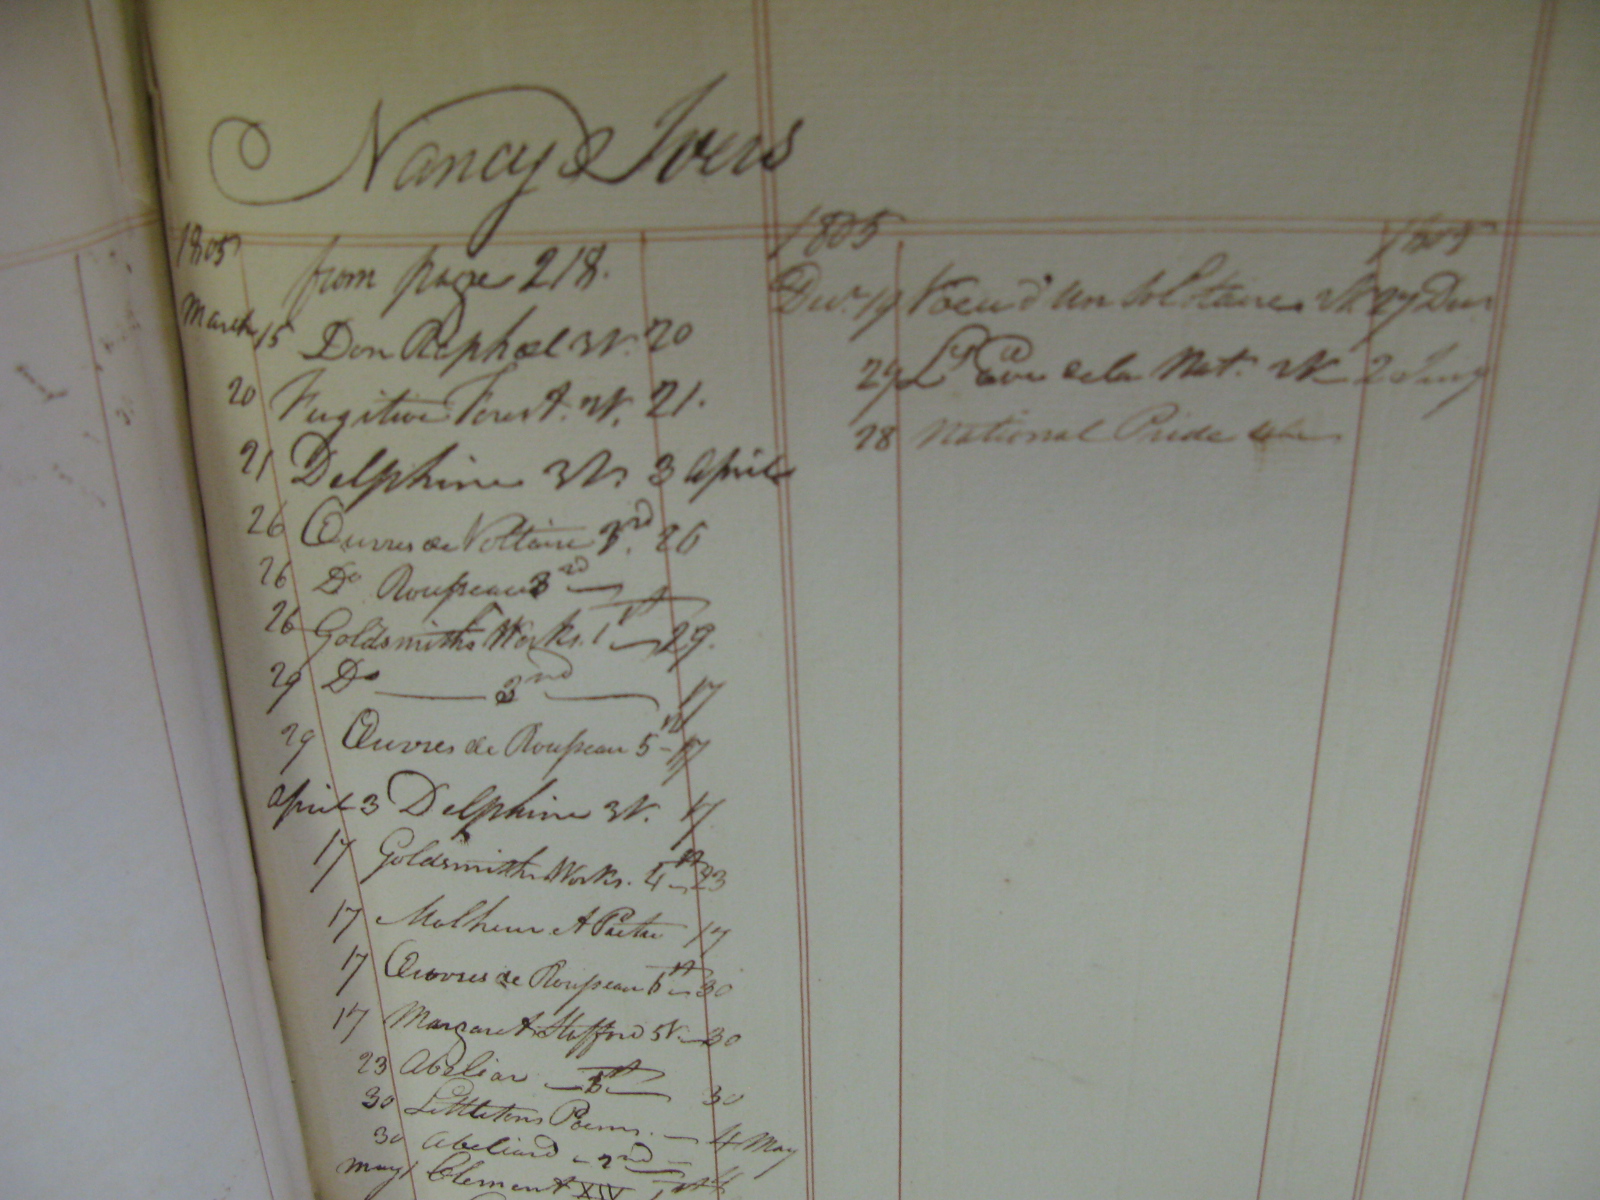 Nancy Ivers
1805
from page 218.
March 15 Don Raphael 3 V. 20
20 Fugitive Forest. V. 21.
21 Delphine 3 Vs 3 April
26 Œuvres de Voltaire 3rd. 26
26 Do Rousseau 3rd
26 Goldsmiths Works. 1st 29.
29 Do 2nd 17
29 Œuvres de Rousseau 5th 17
April 3 Delphine 3 V. 17
17 Goldsmiths Works. 4th 23
17 Malheur et 17
17 Œuvres de Rousseau 30
17 Margaret Stafford 5 V. 30
23 Abeliar 30
30 Littletons Poems. 4 May
30 Abeliard 2nd
May 1 Clement XIV 1st
1805 1805
Decr. 19 un Solitaire 27 Decr
de la Nat. 2 Jany
28 National Pride